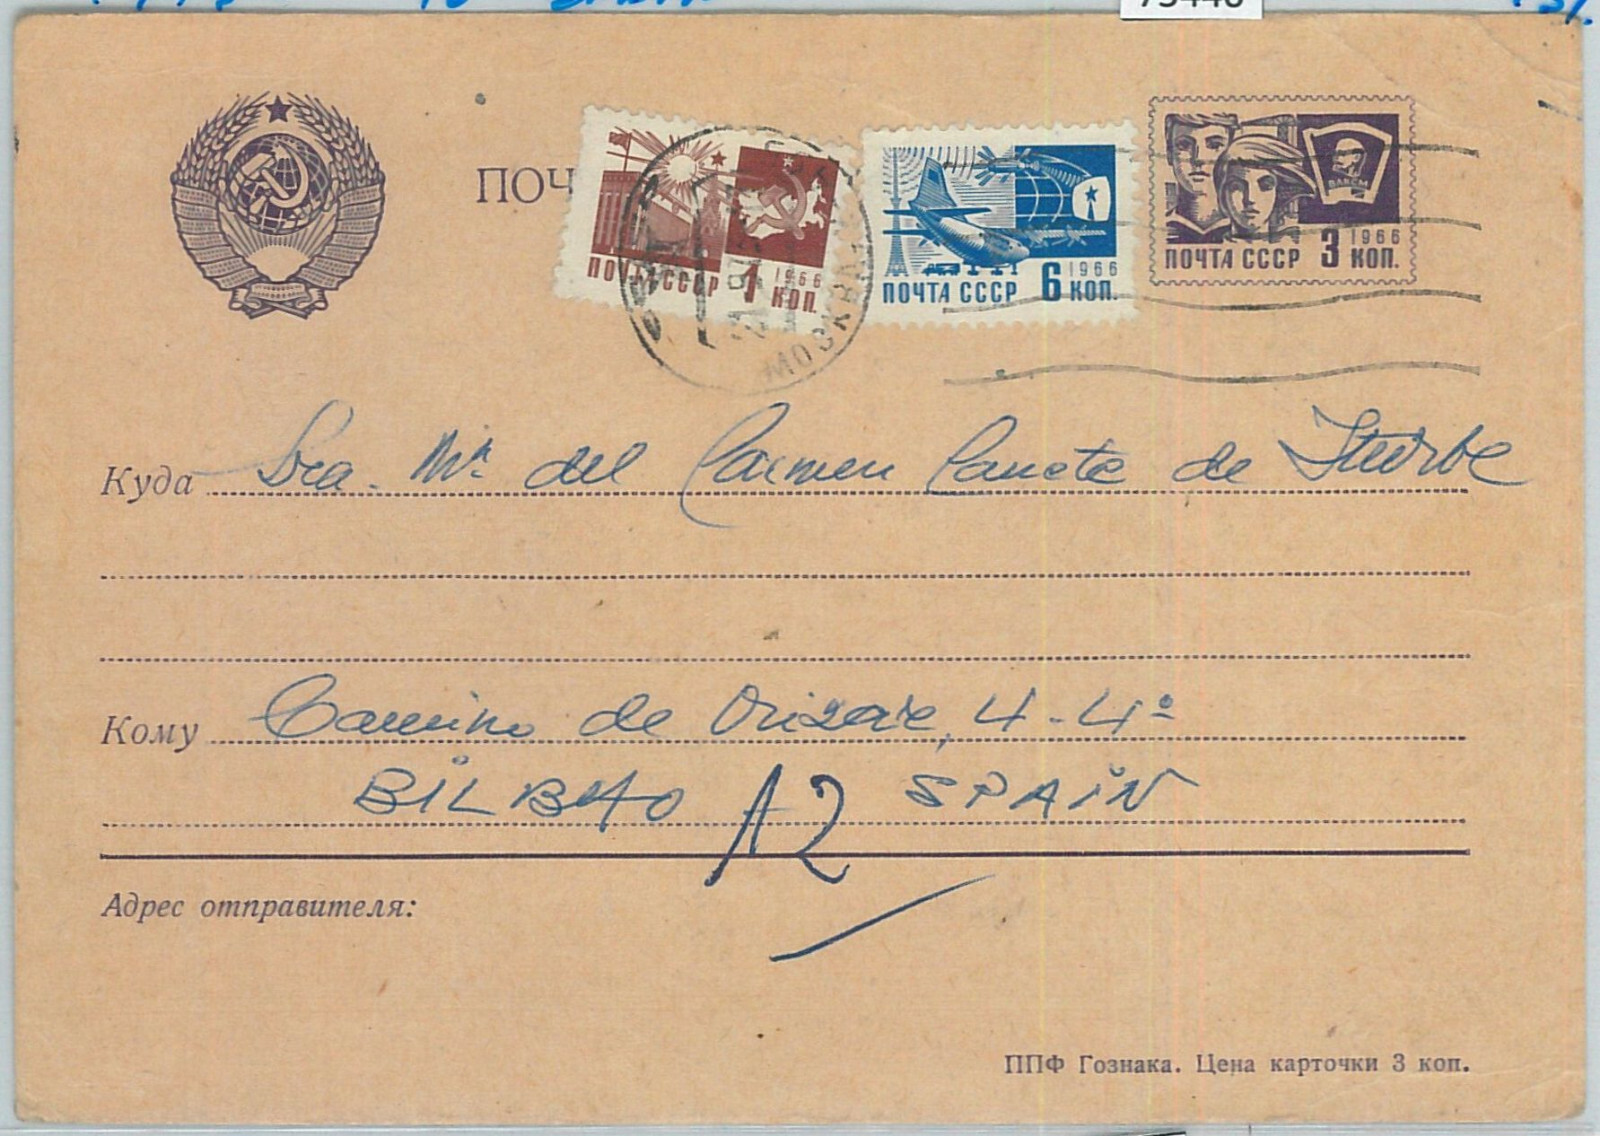 75446
ПОЧ
ПОЧТА СССР 1 1966 КОП.
ПОЧТА СССР 6 1966 КОП.
ВЛКСМ
ПОЧТА СССР 3 1966 КОП.
МОСКВА
Куда Sra. Mª del Carmen Canete de Iturbe
Кому Camino de Orizare, 4-4º
BILBAO A2 SPAIN
Адрес отправителя:
ППФ Гознака. Цена карточки 3 коп.